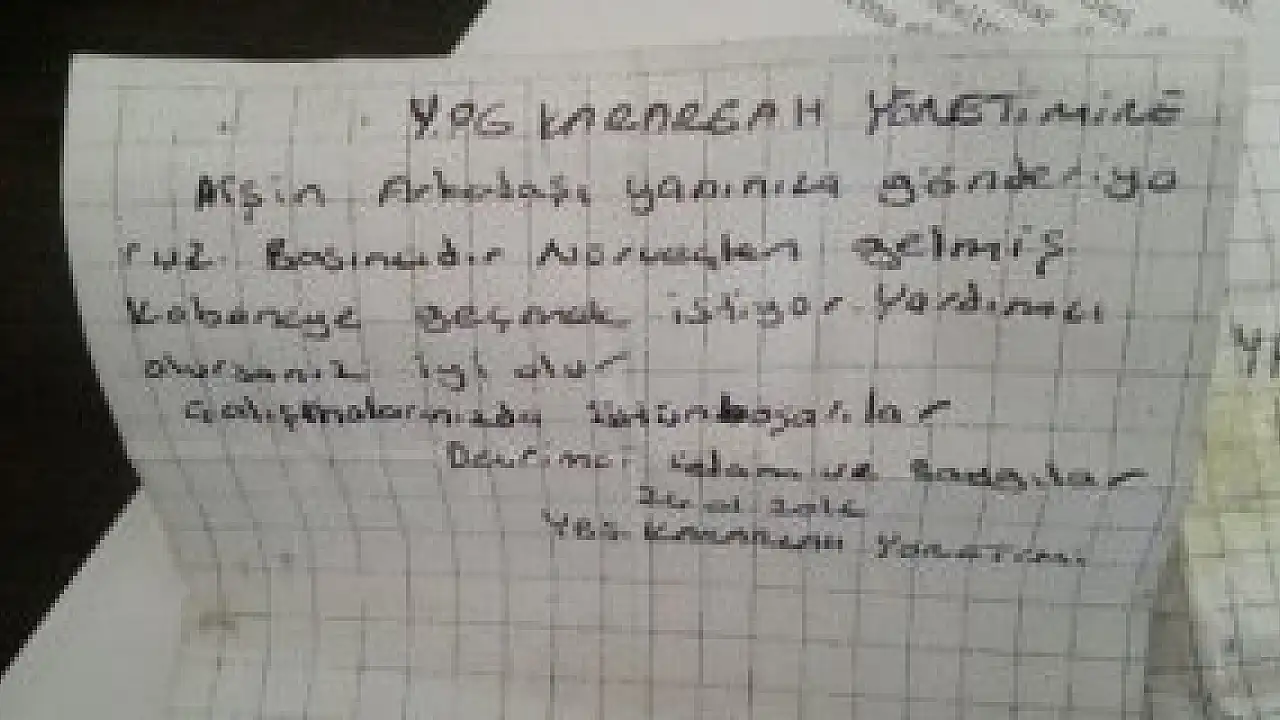 Y.PG KARARGAH YÖNETİMİNE
Afşin Arkadaşı yanınıza gönderiyo
ruz. Basıncıdır Norveçten gelmiş
Kobaneye geçmek istiyor. Yardımcı
olursanız iyi olur
Çalışmalarınızda üstün başarılar
Devrimci selam ve saygılar
YBŞ KARARGAH YÖNETİMİ